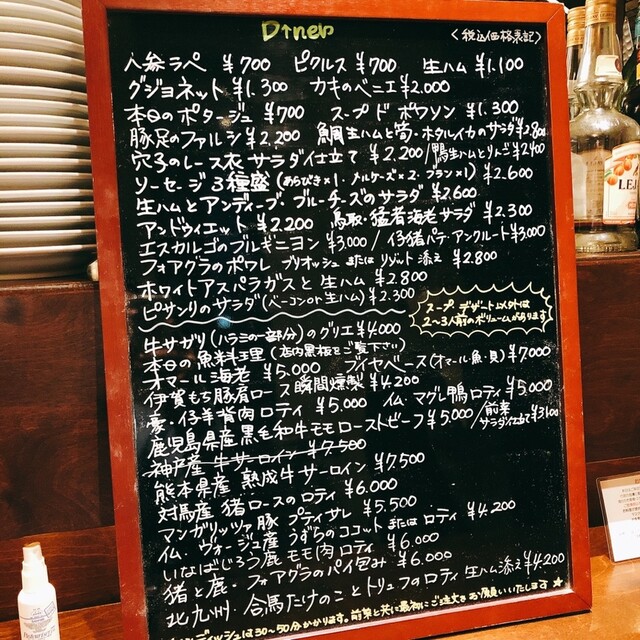 Diner
〈税込価格表記〉
人参ラペ ¥700 ピクルス ¥700 生ハム ¥1.100
グジョネット ¥1.300 カキのベニエ ¥2.000
本日のポタージュ ¥700 スープ ド ポワソン ¥1.300
豚足のファルシ ¥2,200 鯛生ハムと筍・ホタルイカのサラダ ¥2.800
穴子のレース衣 サラダ仕立て ¥2.200/鴨生ハムとりんご ¥2,400
ソーセージ3種盛(あらびき×1・メルゲーズ×2・ブラン×1) ¥2.600
生ハムとアンディーブ・ブルーチーズのサラダ ¥2.600
アンドゥイエット ¥2.200 鳥取・猛者海老サラダ ¥2.300
エスカルゴのブルギニヨン ¥3,000/仔猪パテ・アンクルート ¥3,000
フォアグラのポワレ ブリオッシュ または リゾット添え ¥2.800
ホワイトアスパラガスと生ハム ¥2.800
ピサンリのサラダ(ベーコンor生ハム) ¥2.300
スープ、デザート以外は
2〜3人前のボリュームがあります
牛サガリ(ハラミの一部分)のグリエ ¥4.000
本日の魚料理(店内黒板をご覧下さい)
オマール海老 ¥5.000 ブイヤベース(オマール・魚・貝) ¥7000
伊賀もち豚肩ロース瞬間燻製 ¥4.200
豪・仔羊背肉ロティ ¥5.000 イム・マグレ鴨ロティ ¥5.000
鹿児島県産黒毛和牛モモローストビーフ ¥5.000/前菜サラダ仕立て ¥3,100
神戸産 牛サーロイン ¥7.500
熊本県産 熟成牛サーロイン ¥7,500
対馬産 猪ロースのロティ ¥6.000
マンガリッツァ豚 プティサレ ¥5.500
イム・ヴォージュ産 うずらのココット または ロティ ¥4.200
いなばじろう鹿 モモ肉ロティ ¥6.000
猪と鹿・フォアグラのパイ包み ¥6.000
北九州・合馬たけのことトリュフのロティ 生ハム添え ¥4.200
は30〜50分かかります。前菜と共に最初にご注文をお願いいたします★